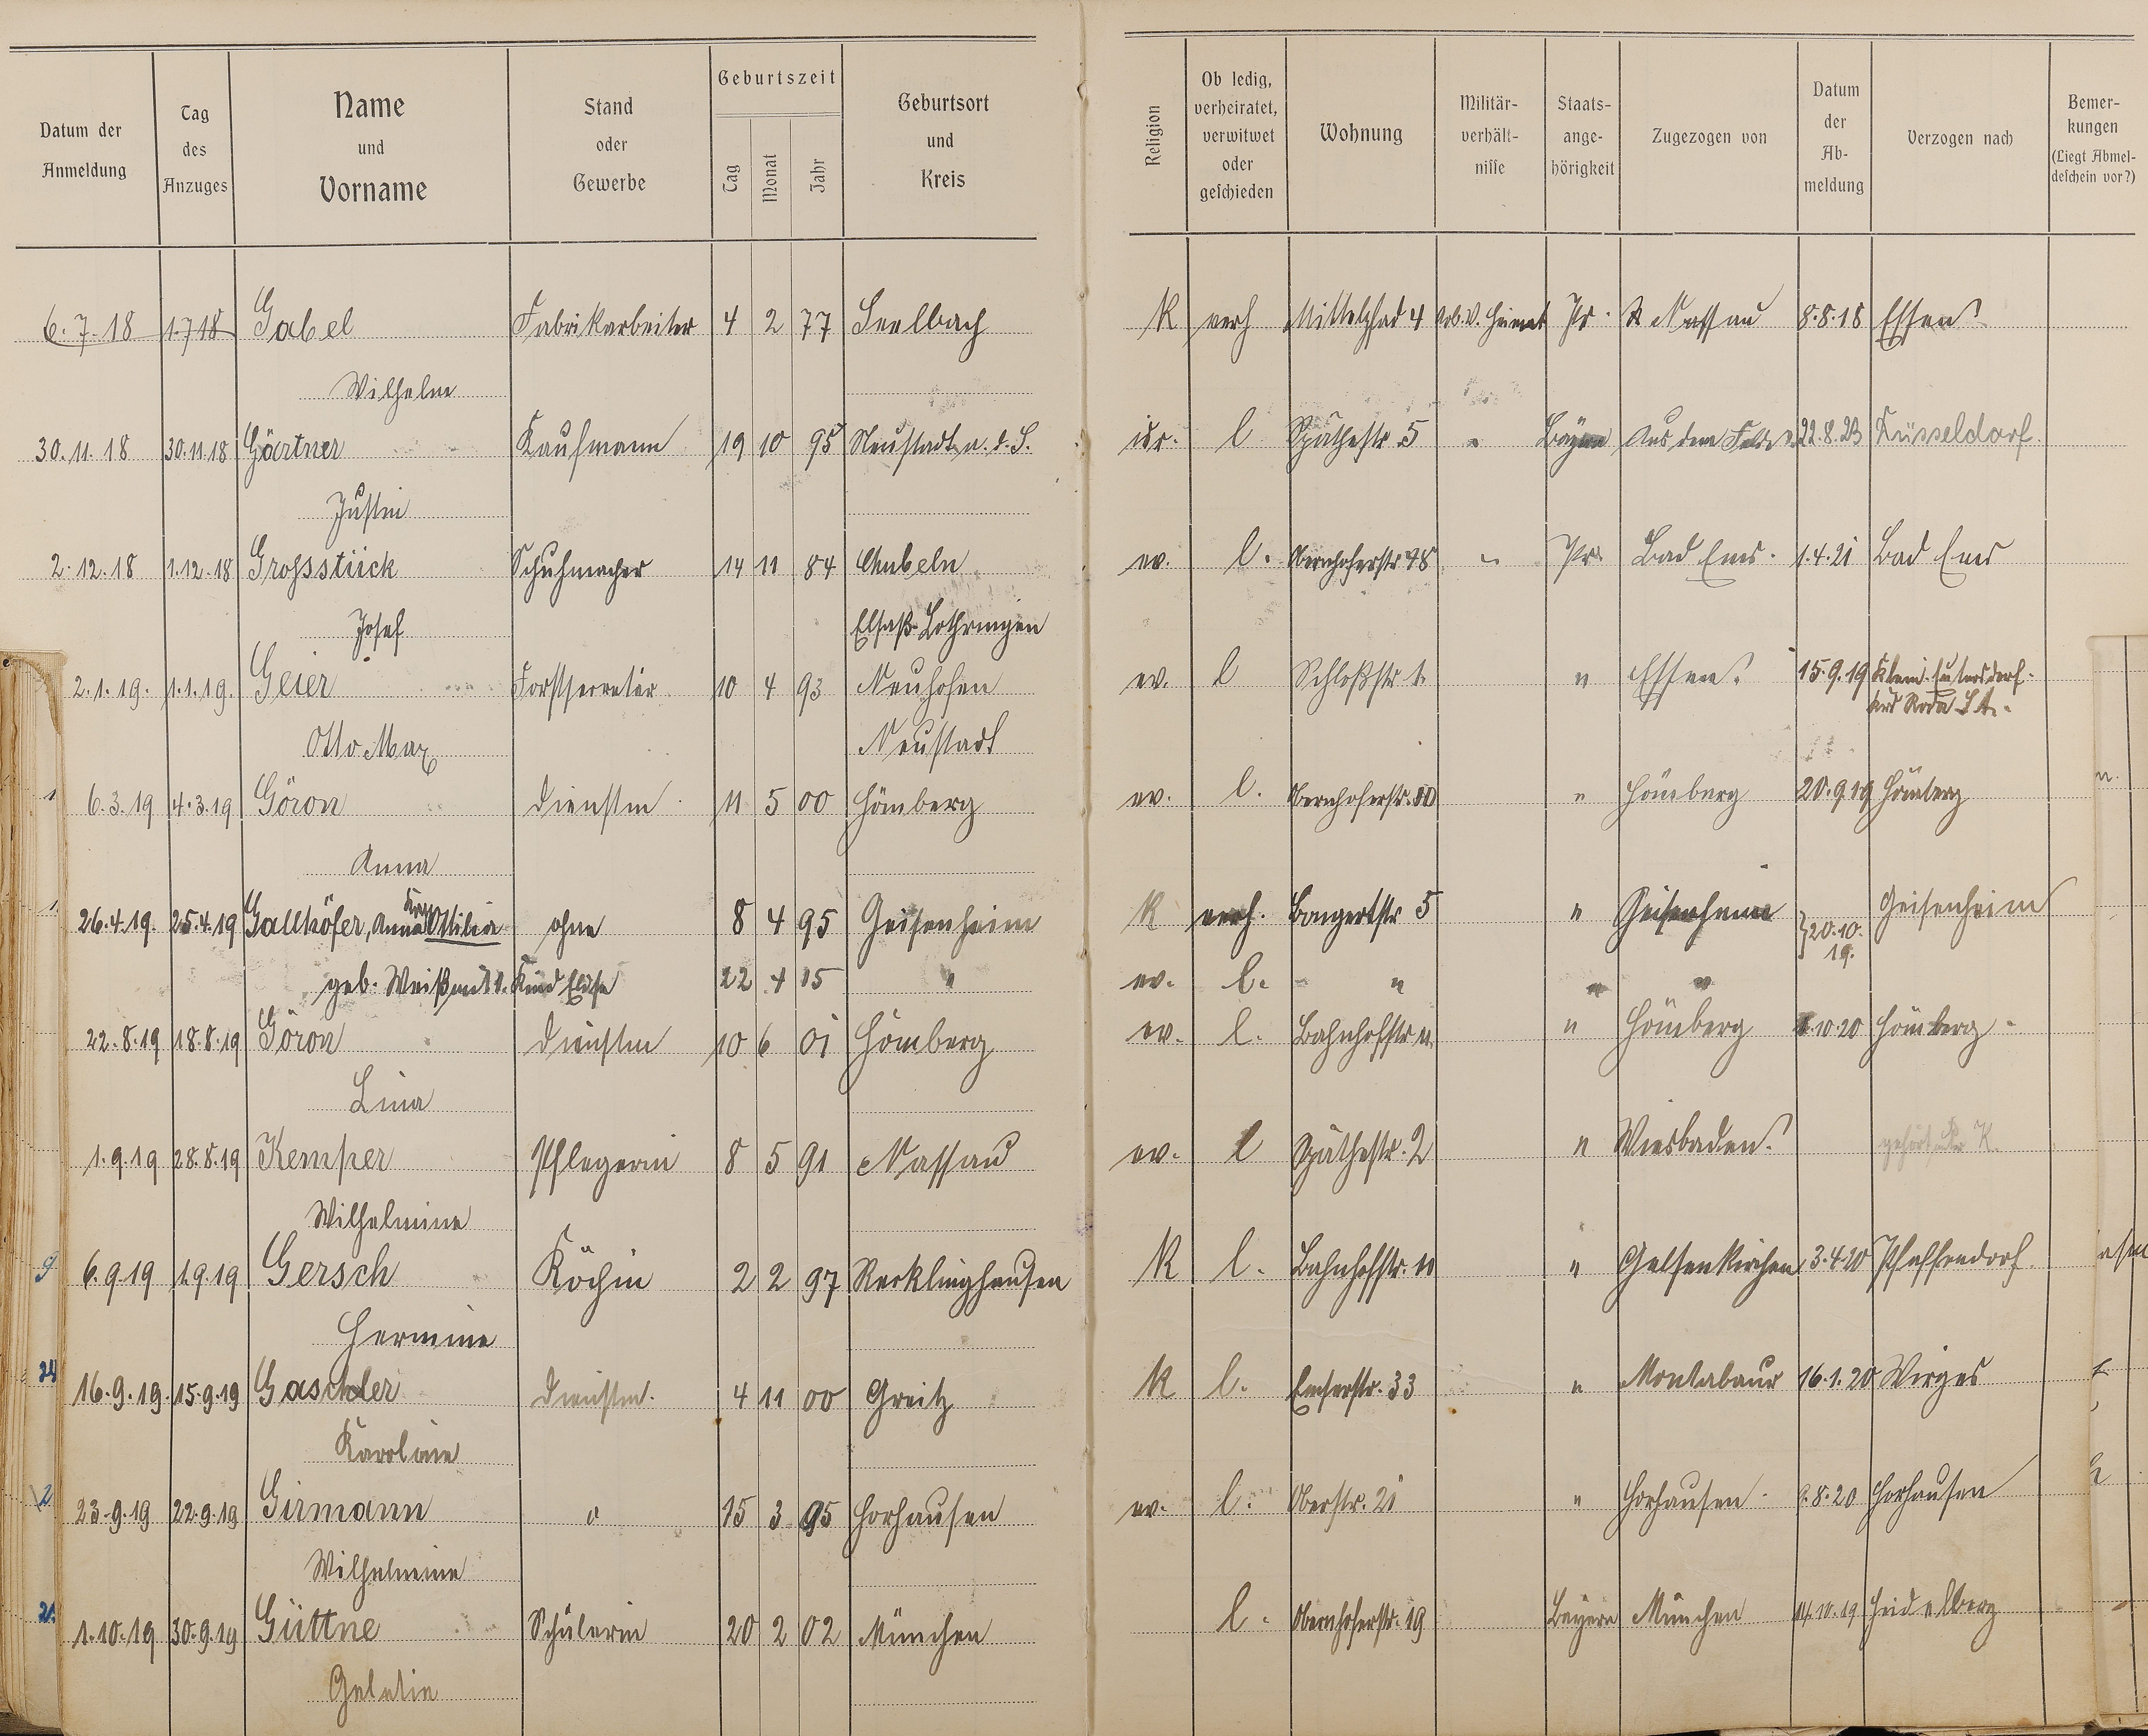 Datum der Anmeldung | Tag des Anzuges | Name und Vorname | Stand oder Gewerbe | Geburtszeit Tag Monat Jahr | Geburtsort und Kreis | Religion | Ob ledig, verheiratet, verwitwet oder geschieden | Wohnung | Militär- verhält- nisse | Staats- ange- hörigkeit | Zugezogen von | Datum der Ab- meldung | Verzogen nach | Bemer- kungen (Liegt Abmel- deschein vor?)
6.7.18 1.7.18 Gabel Fabrikarbeiter 4 2 77 Seelbach K verh Mittelpfad 4 Pr. Nassau 8.8.18 Essen
Wilhelm
30.11.18 30.11.18 Gärtner Kaufmann 19 10 95 Neustadt a. d. S. isr. l Späthestr. 5 " Bayern Aus dem Felde 22.8.23 Düsseldorf.
Justin
2.12.18 1.12.18 Grossstück Schuhmacher 14 11 84 ev. l. Obernhoferstr 48 " Pr. Bad Ems. 1.4.21 Bad Ems
Josef Elsaß-Lothringen
2.1.19. 1.1.19. Geier Forstsecretär 10 4 93 Neuhofen ev. l Schloßstr 1. " Essen. 15.9.19 Klein-
Roda S.A.
Otto Max Neustadt
6.3.19 4.3.19 Göron Dienstm. 11 5 00 Hömberg ev. l. Obernhoferstr. " Hömberg 20.9.19 Hömberg
Anna
26.4.19. 25.4.19 Gallhöfer, Anna Ottilia ohne 8 4 95 Geisenheim K verh. Bongertstr 5 " Geisenheim } 20.10. 19. Geisenheim
geb. Weiß mit 1. Kind Elise 22 4 15 " ev. l. " " "
22.8.19 18.8.19 Göron Dienstm 10 6 01 Hömberg ev. l. Bahnhofstr 11. " Hömberg 1.10.20 Hömberg.
Lina
1.9.19 28.8.19 Kemper Pflegerin 8 5 91 Nassau ev. l Späthestr. 2 " Wiesbaden. gehört unter K.
Wilhelmine
6.9.19 1.9.19 Gersch Köchin 2 2 97 Recklinghausen K l. Bahnhofstr. 10 " Gelsenkirchen 3.4.20 Pfaffendorf.
Hermine
16.9.19. 15.9.19 Gaschler Dienstm. 4 11 00 Greitz K l. Emserstr. 33 " Montabaur 16.1.20 Wirges
Karoline
23.9.19 22.9.19 Girmann " 15 3 95 Horhausen ev. l. Oberstr. 21 " Horhausen. 9.8.20 Horhausen
Wilhelmine
1.10.19 30.9.19 Güttne Schülerin 20 2 02 München l. Obernhoferstr. 19 Bayern München 14.10.19 Heidelberg